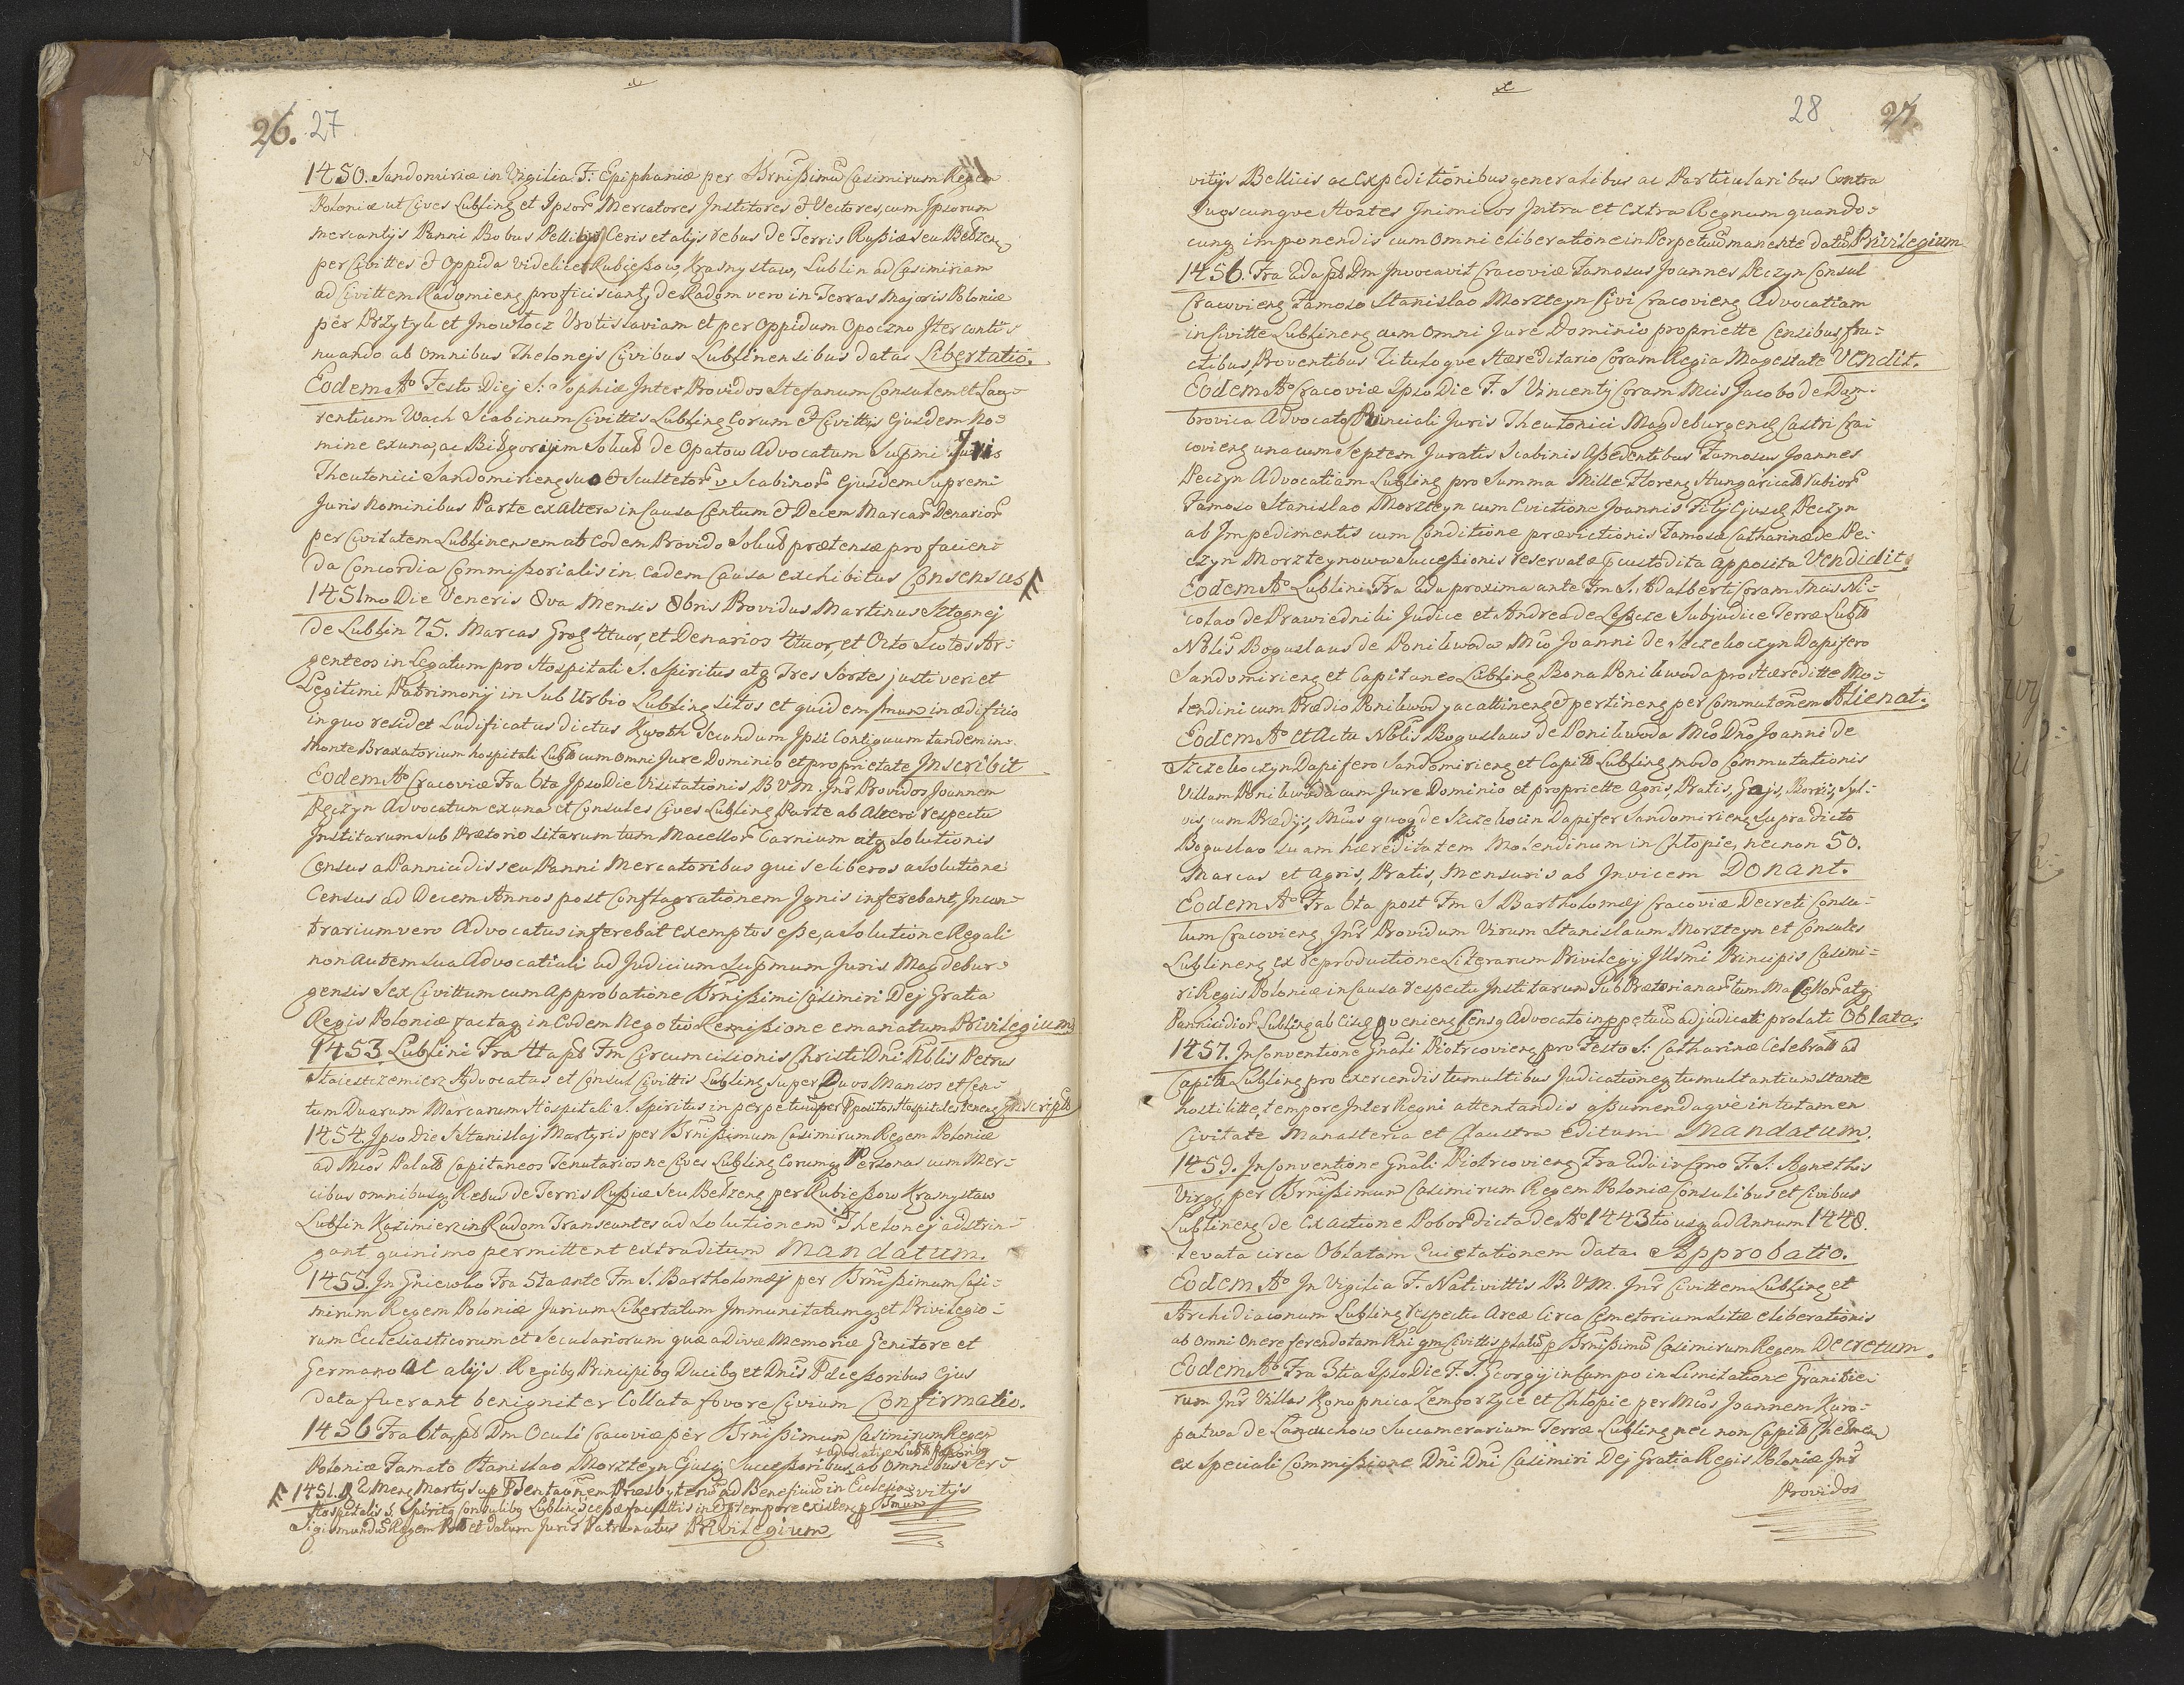 26. 27
1450. Sandomiriæ in Vigilia F: Epiphaniæ per Srnißimũ Casimirum Regem
Poloniæ ut Cives Lubling et Ipsor Mercatores Institores et Vectores, cum Ipsorum
mercantijs Panni Bobus Pellibus Ceris et alijs rebus de Terris Rußiæ seu Belzeng
per Civittes et Oppida videlicet Rubießow, Krasnystaw, Lublin ad Casimiriam
ad Civittem Radomieng proficiscant, de Radom vero in Terras Majoris Poloniæ
per Przytyk et Inowłocz Vrotislaviam et per Oppidum Opoczno Iter conti-
nuando ab omnibus Thelonejs Civibus Lublinensibus data Libertatio.
Eodem Aº Festo Diej S: Sophiæ Inter Providos Stefanum Consulem et Lau-
rentium Wach Scabinum Civittis Lubling Eorum et Civittis Ejusdem No-
mine ex una, ac Bibgorium Solub de Opatow Advocatum Supmi Juris
Theutonici Sandomirieng suo et Scultetor v Scabinor Ejusdem Supremi
Juris Nominibus Parte ex Altera in Causa Centum et Decem Marcar Denarior
per Civitatem Lublinensem ab eodem Provido Solub prætensæ pro facien-
da Concordia Commißorialis in eadem Causa exchibitus Consensus
1451mo Die Veneris 8va Mensis 8bris Providus Martinus Sztognej
de Lublin 75. Marcas Groß 4tuor, et Denarios 4tuor, et Octo Scotos Ar-
genteos in Legatum pro Hospitali S. Spiritus atq Tres Sortes justi veri et
Legitimi Patrimonij in Sub Urbio Lubling sitos et quidem Imum in ædificio
in quo residet Ludificatus dictus Kwoth Secundum Ipsi Contiguum tandem in
Monte Braxatorium hospitali Lubl cum omni Jure Dominio et proprietate Inscribit
Eodem Aº Cracoviæ Fra 6ta Ipso Die Visitationis B V M. Inr Providos Joannem
Peczyn Advocatum ex una et Consules Cives Lubling Parte ab Altera respectu
Institarum sub Prætorio sitarum tum Macellor Carnium atq solutionis
Census a Pannicidis seu Panni Mercatoribus qui se liberos a solutione
Census ad Decem Annos post Conflagrationem Ignis inferebant, In con-
trarium vero Advocatus inferebat exemptos eße, a solutione Regali
non autem sua Advocatiali ad Judicium Supmum Juris Magdebur-
gensis Sex Civittum cum Approbatione Srnißimi Casimiri Dej Gratia
Regis Poloniæ factaq in Eodem Negotio Remißione emanatum Privilegium
1453. Lublini Fra 4ta pt Fm Circumcisionis Christi Dni Nblis Petrus
Staiestrzemierz Advocatus et Consul Civittis Lubling super Duos Mansos et Cen-
tum Duarum Marcarum Hospitali S. Spiritus in perpetuũ per Ppositos Hospitales teneng Inscripto
1454. Ipso Die S Stanislaj Martyris per Srnißimum Casimirum Regem Poloniæ
ad Mcos Palatt Capitaneos Tenutarios ne Cives Lubling Eorumq Personas cum Mer-
cibus omnibusq Rebus de Terris Rußiæ seu Belzeng per Rubießow Krasnystaw
Lublin Kazimierz in Radom Transeuntes ad solutionem Thelonej adstrin-
gant, quinimo permittent extraditum Mandatum.
1455. In Gniewko Fra 5ta ante Fm S. Bartholomæj per Srnißimum Casi-
mirum Regem Poloniæ Jurium Libertatum Immunitatumq et Privilegio-
rum Ecclesiasticorum et Seculariorum quæ a Divæ Memoriæ Genitore et
Germano Ac alijs Regibq Principibq Ducibq et Dnis Pdceßoribus Ejus
data fuerant benigniter Collata fovore Civium Confirmatio.
1456 Fra 6ta pt Dm Oculi Cracoviæ per Srnißimum Casimirum Regem
+ advocatiæ Lubl Possoribq
Poloniæ Famato Stanislao Morzteyn Ejusq Succeßoribus ab omnibus Ser-
vitijs
1451. 2 Meng Martij sup Psentaõnem Præsbyterũ ad Beneficiũ in Ecclesia
Hospitalis S. Spiritq Consulibq Lubling
Sigismundũ Regem Poł et datum Juris Patronatus Privilegium
28 27
vitijs Bellicis ac Expeditionibus generalibus ac Particularibus Contra
Quoscunque Hostes Inimicos Intra et Extra Regnum quando-
cunq imponendis cum omni eliberatione in Perpetuũ manente datũ Privilegium
1456. Fra 2da pt Dm Invocavit Cracoviæ Famosus Joannes Peczyn Consul
Cracovieng Famoso Stanislao Morzteyn Civi Cracovieng Advocatiam
in Civitte Lublineng cum omni Jure Dominio propriette Censibus, fru-
ctibus, Proventibus Tituloque Hæreditario Coram Regia Magestate Vendit.
Eodem Aº Cracoviæ Ipso Die F. S Vincentij Coram Mcis Jacobo de Dam-
browica Advocato Pvinciali Juris Theutonici Magdeburgeng Castri Cra-
covieng una cum Septem Juratis Scabinis Aßedentibus Famosus Joannes
Peczyn Advocatiam Lubling pro Summa Mille Floreng Hungaricall Rubior
Famoso Stanislao Morzteyn cum Evictione Joannis Filij Ejusd Peczyn
ab Impedimentis cum Conditione prævictionis Famosæ Catharinæ de Pe-
czyn Morzteynowa Succeßionis reservatæ custodita apposita Vendidit.
Eodem Aº Lublini Fra 2da proxima ante Fm S. Adalberti Coram Mcis Ni-
colao de Prawiedniki Judice et Andrea de Subjudice Terræ Lubl
Nblis Boguslaus de Ponikwoda Mco Joanni de Szczekoczyn Dapifero
Sandomirieng et Capitaneo Lubling Bona Ponikwoda pro Hæreditte Mo-
lendini cum Prædio Ponikwody ac attineng et pertineng per Commutonem Alienat.
Eodem Aº et Actu Nblis Boguslaus de Ponikwoda Mco Dno Joanni de
Szczekoczyn Dapifero Sandomirieng et Capitt Lubling modo Commutationis
Villam Ponikwoda cum Jure Dominio et propriette Agris, Pratis, Gajs, Borris, Syl-
vis, cum Prædijs, Mcus quoq de Szczekocin Dapifer Sandomirieng Supra dicto
Boguslao suam hæreditatem Molendinum in Chlopie, nec non 50.
Marcas et Agris, Pratis, Mensuris ab Invicem Donant.
Eodem Aº Fra 6ta post Fm S Bartholomæj Cracoviæ Decreti Consu-
lum Cracovieng Inr Providum Virum Stanislaum Morzteyn et Consules
Lublineng ex reproductione Literarum Privilegij Illsmi Principis Casimi-
ri Regis Poloniæ in Causa respectu Institarum Sub Prætorianar tum Macellor atq
Pannicidior Lubling ab Eisq pvenieng Censq Advocato in ppetuũ adjudicati prolati Oblata.
1457. In Conventione Gnali Piotrcovieng pro Festo S: Catharinæ Celebratt ad
Capitt Lubling pro exercendis tumultibus Judicationeq tumultantium stante
hostilitte, tempore Inter Regni attentandis aßumendaque in tutamen
Civitate Manasteria et Claustra editum Mandatum.
1459. In Conventione Gnali Piotrcovieng Fra 2da in Crno F. S. Agnethis
Virgg per Srnißimum Casimirum Regem Poloniæ Consulibus et Civibus
Lublineng de Exactione Pobor dicta de Aº 1443tio usq ad Annum 1448.
levata circa Oblatam Quietationem data Approbatio.
Eodem Aº In Vigilia F. Nativittis B. V M. Inr Civittem Lubling et
Archidiaconum Lubling respectu Areæ Circa Cæmetorium sitæ eliberationis
ab omni Onere ferendo tam Rni qm Civittis platũ p Srnißimũ Casimirum Regem Decretum.
Eodem Aº Fra 3tia Ipso Die F. S. Georgij in Campo in Limitatione Granitie-
rum Inr Villas Konopnica Zemborzyce et Chlopie per Mcos Joannem Kuro-
patwa de Lancuchow Succamerarium Terræ Lubling nec non Capitt Chelmen
ex speciali Commißione Dni Dni Casimiri Dej Gratia Regis Poloniæ Inr
Providos